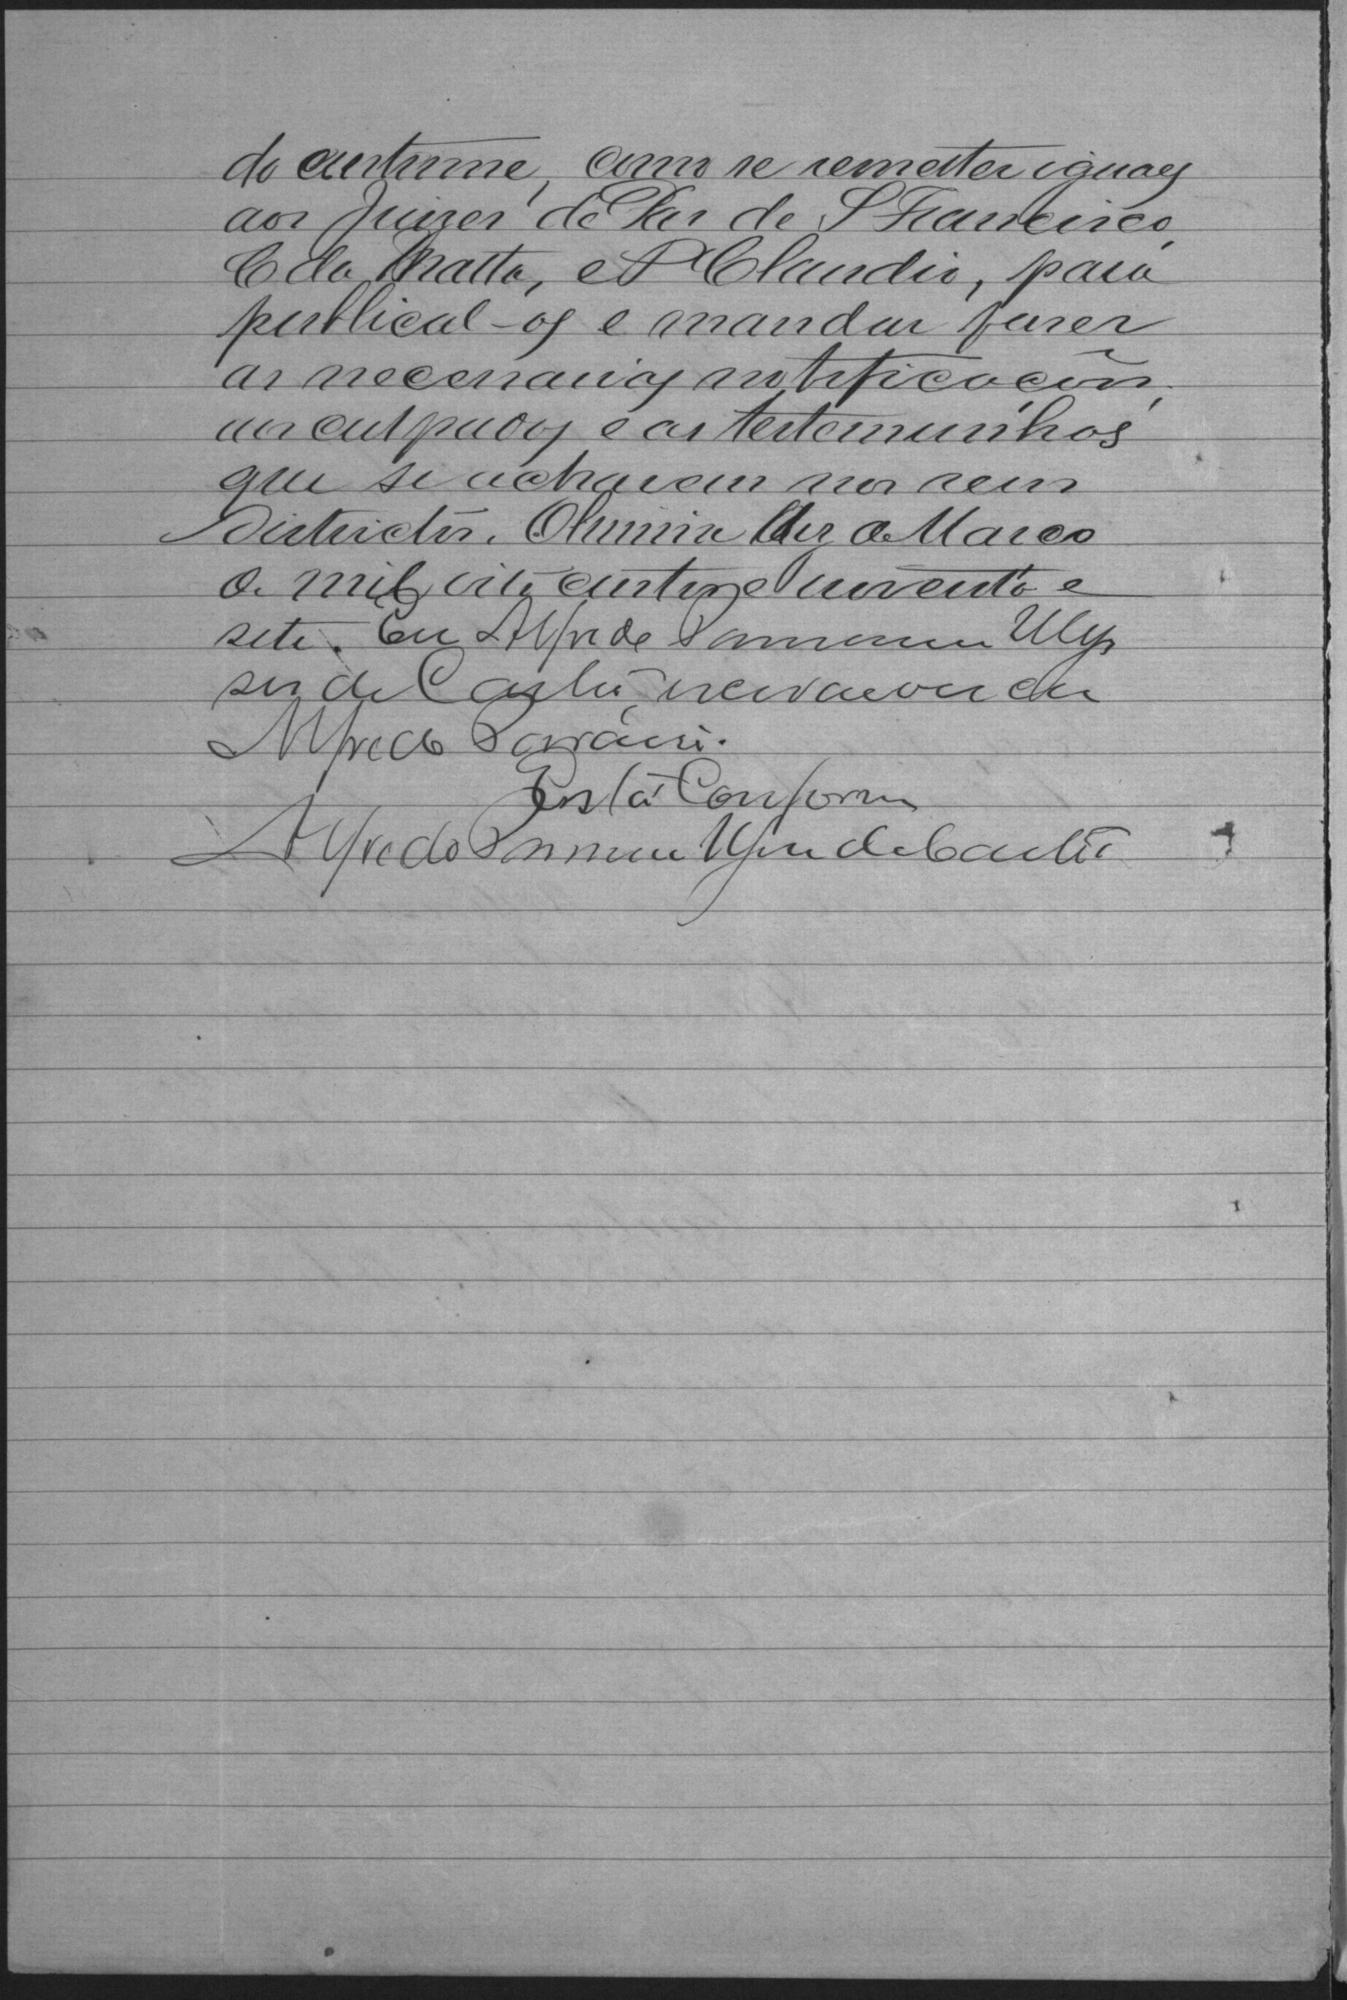 do custume, como se remetter iguaes
aos Juizes de Paz de S Francisco,
C da Matta, e P Claudio, para
publical-os e mandar fazer
as necessarias notificacões,
aos culpados e as testemunhas
que se acharem nos seus
Districtos. de Marco
de mil oito centos e noventa e
sete. Eu Alfredo Ulys
ses de Castro, escrivão
Alfredo
Está Conforme
Alfredo de Castro